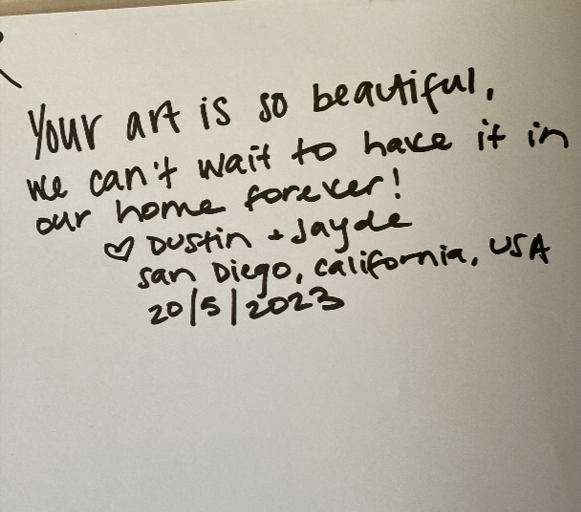 Your art is so beautiful,
we can't wait to have it in
our home forever!
♡ Dustin + Jayde
San Diego, California, USA
20/5/2023